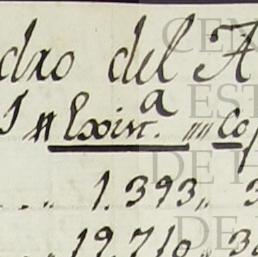 dro del A
# Exist.ª „„ Co
1.393„ 3
19.710„ 3
CEN
EST
DE H
DE